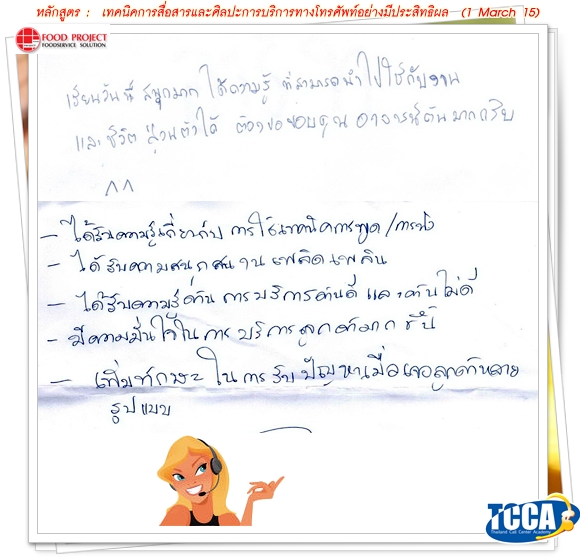 หลักสูตร : เทคนิคการสื่อสารและศิลปะการบริการทางโทรศัพท์อย่างมีประสิทธิผล (1 March 15)
FOOD PROJECT
FOODSERVICE SOLUTION
เรียนวันนี้ สนุกมาก ได้ความรู้ ที่สามารถนำไปใช้กับงาน
และ ชีวิต ส่วนตัวได้ ต้องขอขอบคุณ อาจารย์ต้นมากครับ
^^
- ได้รับความรู้เกี่ยวกับ การใช้เทคนิคการพูด /การฟัง
- ได้รับความสนุกสนาน เพลิดเพลิน
- ได้รับความรู้ด้าน การบริการด้านดี และด้านไม่ดี
- มีความมั่นใจในการ บริการลูกค้ามาก ขึ้น
- เพิ่มทักษะ ในการรับปัญหาเมื่อเจอลูกค้าหลาย
รูปแบบ
TCCA
Thailand Call Career Academy